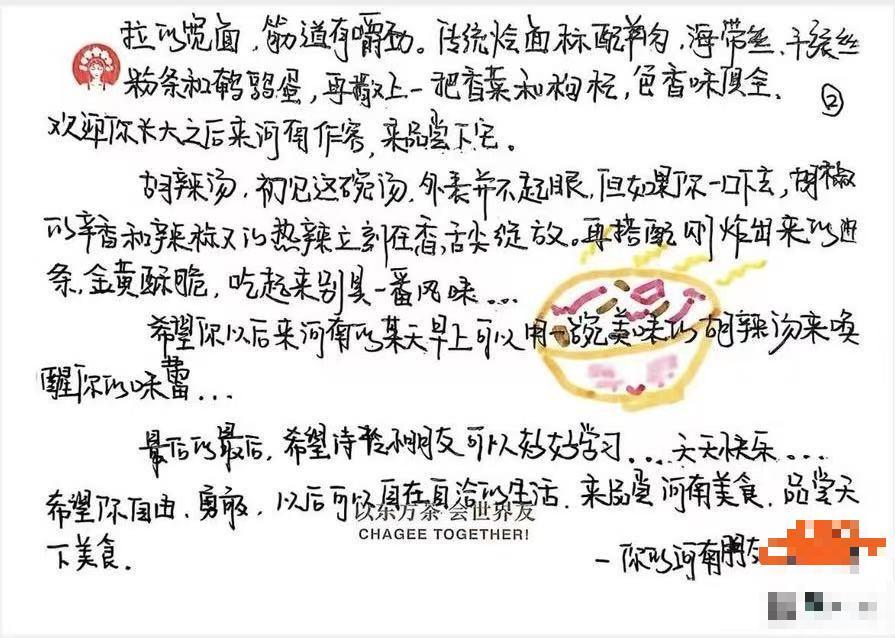 拉的宽面，筋道有嚼劲。传统烩面标配羊肉，海带丝、千张丝
粉条和鹌鹑蛋，再撒上一把香菜和枸杞，色香味俱全、
②
欢迎你长大之后来河南作客，来品尝下它。
胡辣汤，初见这碗汤，外表并不起眼，但如果你一口下去，胡椒
的辛香和辣椒的热辣立刻在香舌尖绽放。再搭配刚炸出来的油
条，金黄酥脆，吃起来别具一番风味...
希望你以后来河南的某天早上可以用一碗美味的胡辣汤来唤
醒你的味蕾...
最后的最后，希望诗小朋友可以好好学习...天天快乐...
希望你自由、勇敢，以后可以自在自洽的生活，来品尝河南美食，品尝天
以东方茶 会世界友
CHAGEE TOGETHER!
下美食.
—你的河南朋友